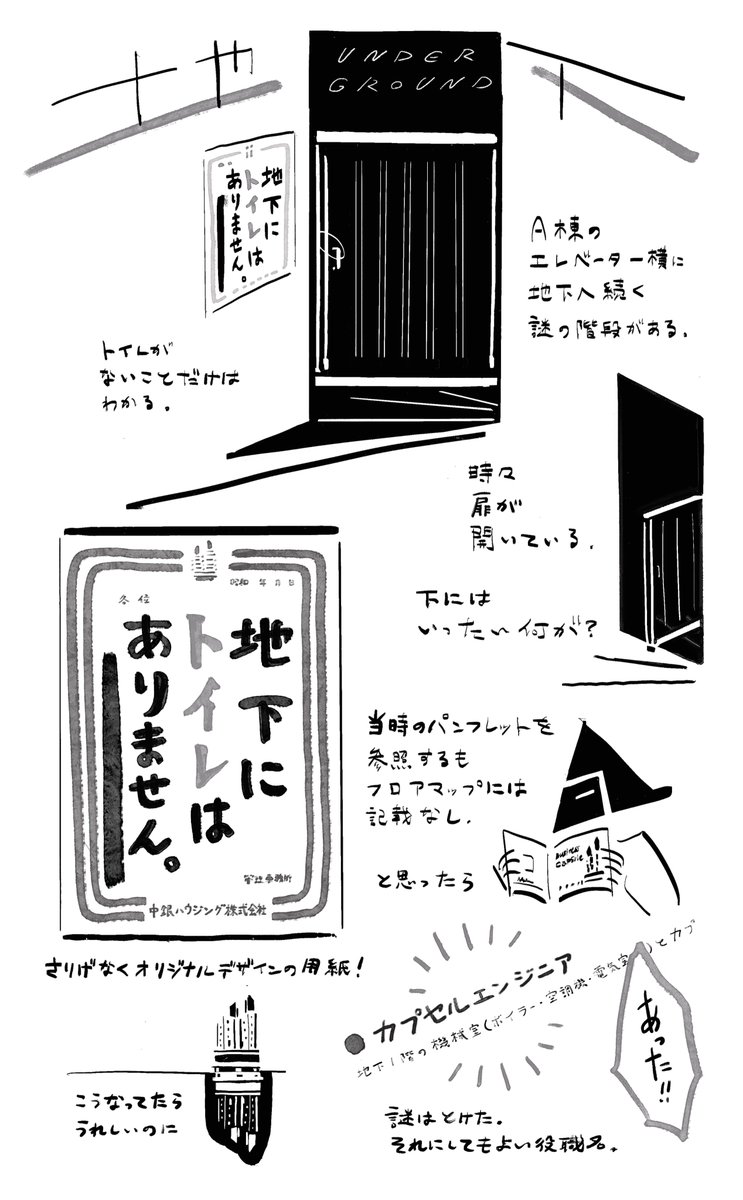 UNDER
GROUND
地下に
トイレは
ありません。
A棟の
エレベーター横に
地下へ続く
謎の階段がある。
トイレが
ないことだけは
わかる。
時々
扉が
開いている。
下には
いったい何が?
昭和 年 月 日
各位
地下に
トイレは
ありません。
管理事務所
中銀ハウジング株式会社
さりげなくオリジナルデザインの用紙!
当時のパンフレットを
参照するも
フロアマップには
記載なし。
business
capsule
と思ったら
●カプセルエンジニア
地下1階の機械室(ボイラー・空調機・電気室)とカプ
あった!!
こうなってたら
うれしいのに
謎はとけた。
それにしてもよい役職名。